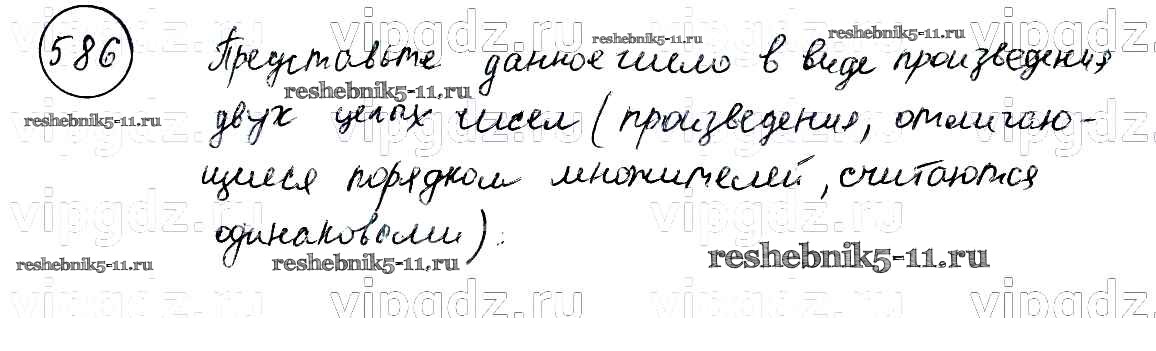 586 Представьте данное число в виде произведения
двух целых чисел (произведения, отличаю-
щиеся порядком множителей, считаются
одинаковыми):
vipgdz.ru
reshebnik5-11.ru